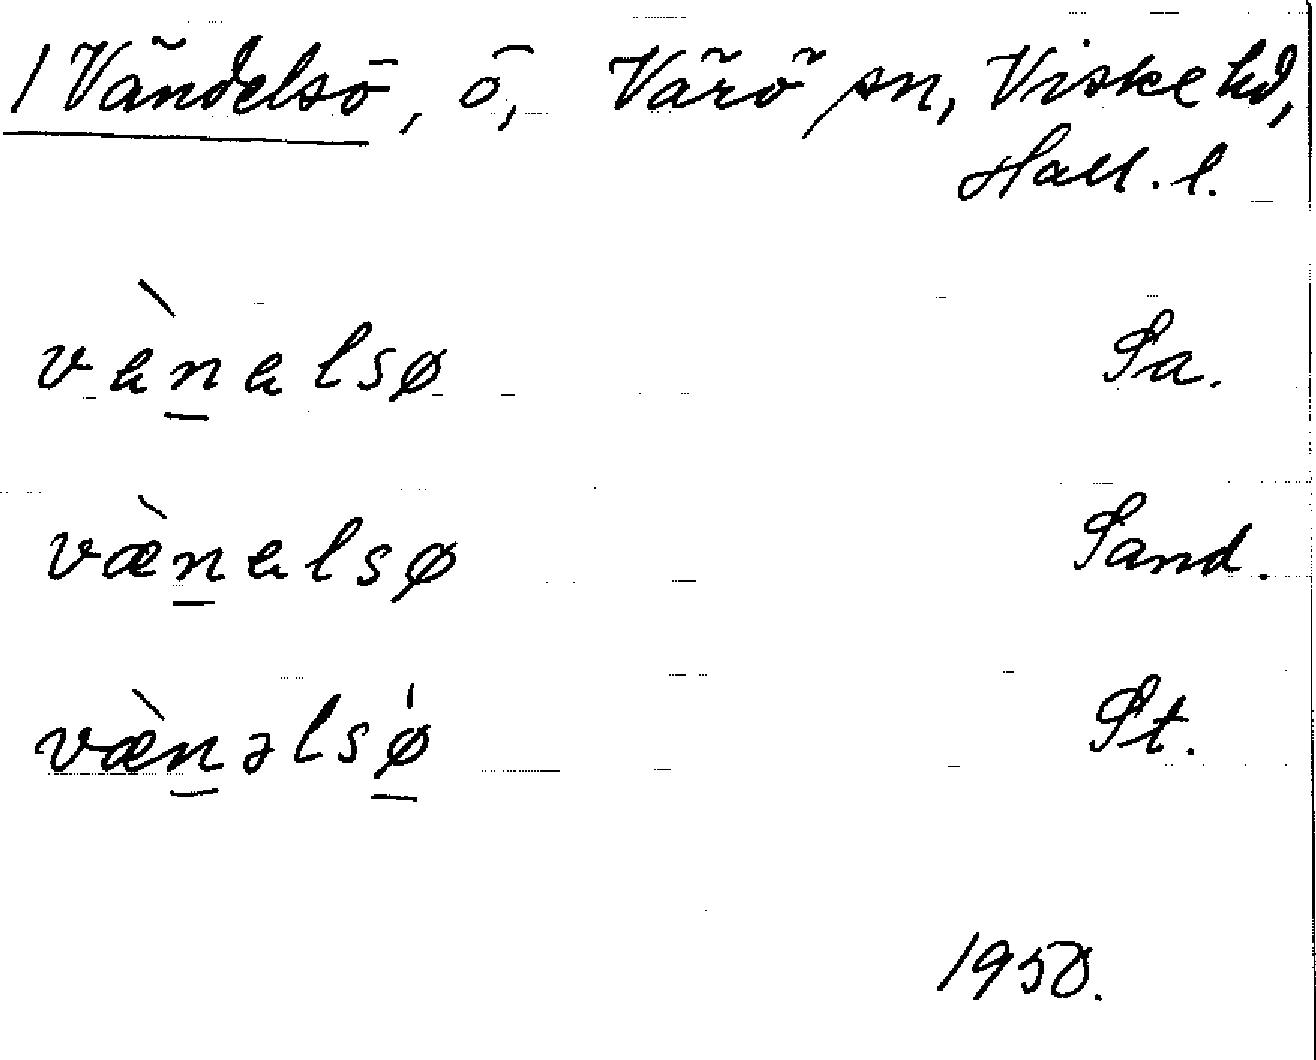 1 Vändelsö, ö, Värö sn, Viske hd,
Hall. l.
vànalsø Sa.
væ̀nalsø Sand.
væ̀nəlsǿ St.
1950.